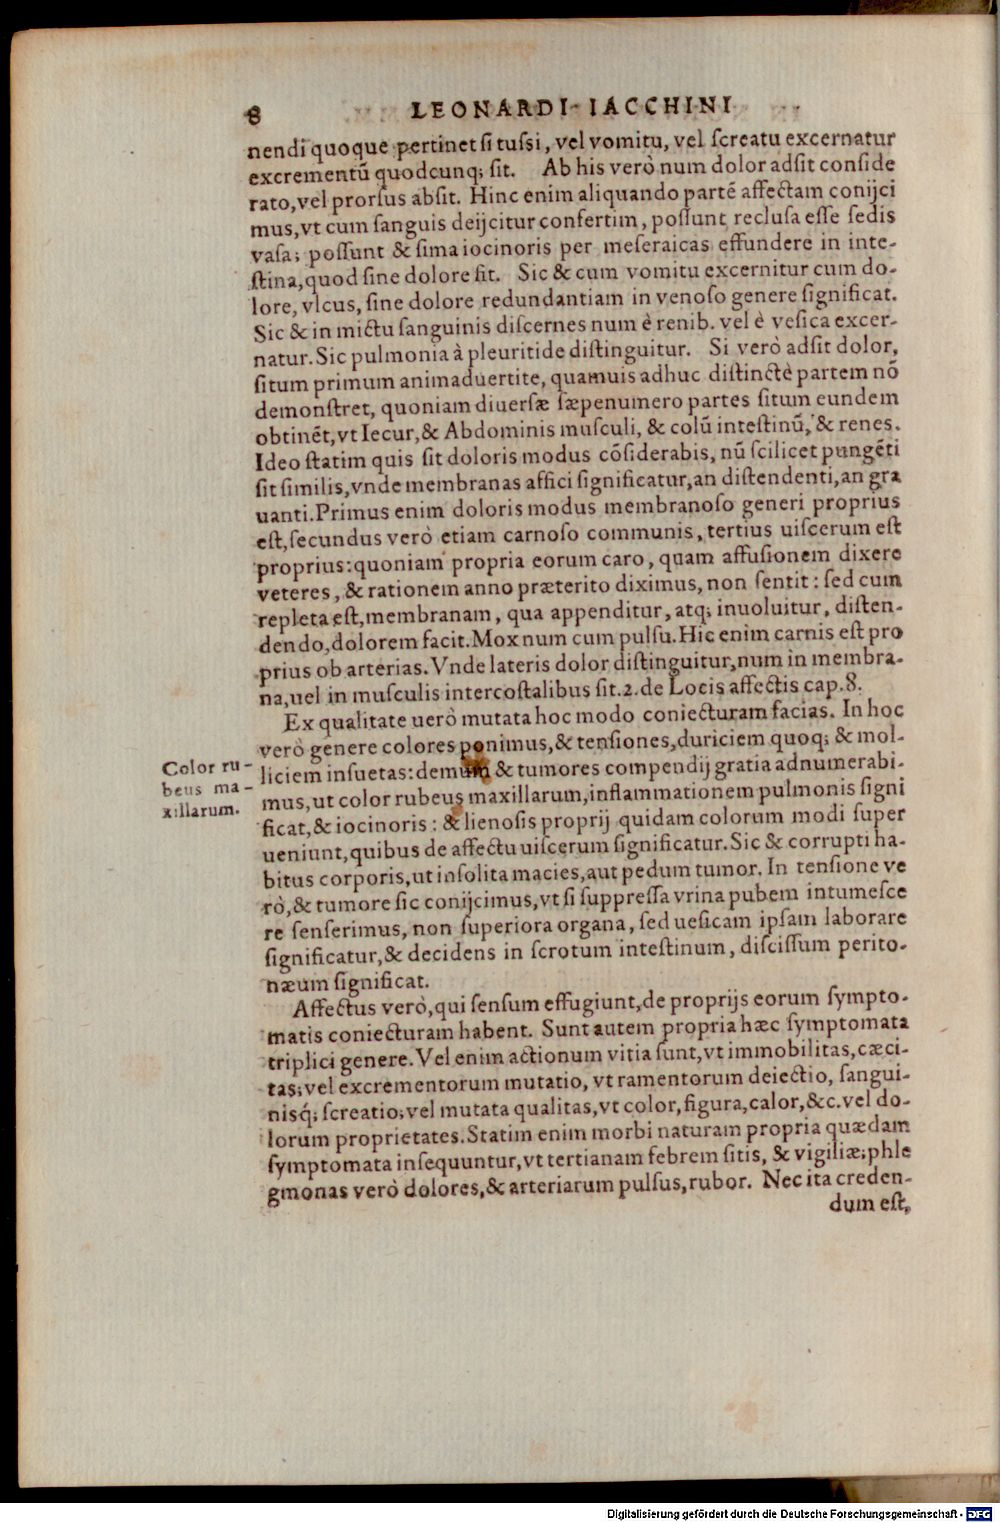 8 LEONARDI IACCHINI
nendi quoque pertinet si tussi, vel vomitu, vel screatu excernatur
excrementũ quodcunq; sit. Ab his verò num dolor adsit conside
rato, vel prorsus absit. Hinc enim aliquando partẽ affectam conijci
mus, vt cum sanguis deijcitur confertim, possunt reclusa esse sedis
vasa; possunt & sima iocinoris per meseraicas effundere in inte-
stina, quod sine dolore sit. Sic & cum vomitu excernitur cum do-
lore, vlcus, sine dolore redundantiam in venoso genere significat.
Sic & in mictu sanguinis discernes num è renib. vel è vesica excer-
natur. Sic pulmonia à pleuritide distinguitur. Si verò adsit dolor,
situm primum animaduertite, quamuis adhuc distinctè partem nõ
demonstret, quoniam diuersæ sæpenumero partes situm eundem
obtinẽt, vt Iecur, & Abdominis musculi, & colũ intestinũ, & renes.
Ideo statim quis sit doloris modus cõsiderabis, nũ scilicet pungẽti
sit similis, vnde membranas affici significatur, an distendenti, an gra
uanti. Primus enim doloris modus membranoso generi proprius
est, secundus verò etiam carnoso communis, tertius uiscerum est
proprius: quoniam propria eorum caro, quam affusionem dixere
veteres, & rationem anno præterito diximus, non sentit: sed cum
repleta est, membranam, qua appenditur, atq; inuoluitur, disten-
dendo, dolorem facit. Mox num cum pulsu. Hic enim carnis est pro
prius ob arterias. Vnde lateris dolor distinguitur, num in membra-
na, uel in musculis intercostalibus sit. 2. de Locis affectis cap. 8.
Ex qualitate uerò mutata hoc modo coniecturam facias. In hoc
verò genere colores ponimus, & tensiones, duriciem quoq; & mol-
liciem insuetas: demum & tumores compendij gratia adnumerabi-
mus, ut color rubeus maxillarum, inflammationem pulmonis signi
ficat, & iocinoris: & lienosis proprij quidam colorum modi super
ueniunt, quibus de affectu uiscerum significatur. Sic & corrupti ha-
bitus corporis, ut insolita macies, aut pedum tumor. In tensione ve
rò, & tumore sic conijcimus, vt si suppressa vrina pubem intumesce
re senserimus, non superiora organa, sed uesicam ipsam laborare
significatur, & decidens in scrotum intestinum, discissum perito-
næum significat.
Color ru-
beus ma-
xillarum.
Affectus verò, qui sensum effugiunt, de proprijs eorum sympto-
matis coniecturam habent. Sunt autem propria hæc symptomata
triplici genere. Vel enim actionum vitia sunt, vt immobilitas, cæci-
tas; vel excrementorum mutatio, vt ramentorum deiectio, sangui-
nisq́; screatio; vel mutata qualitas, vt color, figura, calor, &c. vel do-
lorum proprietates. Statim enim morbi naturam propria quædam
symptomata insequuntur, vt tertianam febrem sitis, & vigiliæ; phle
gmonas verò dolores, & arteriarum pulsus, rubor. Nec ita creden-
dum est,
Digitalisierung gefördert durch die Deutsche Forschungsgemeinschaft - DFG